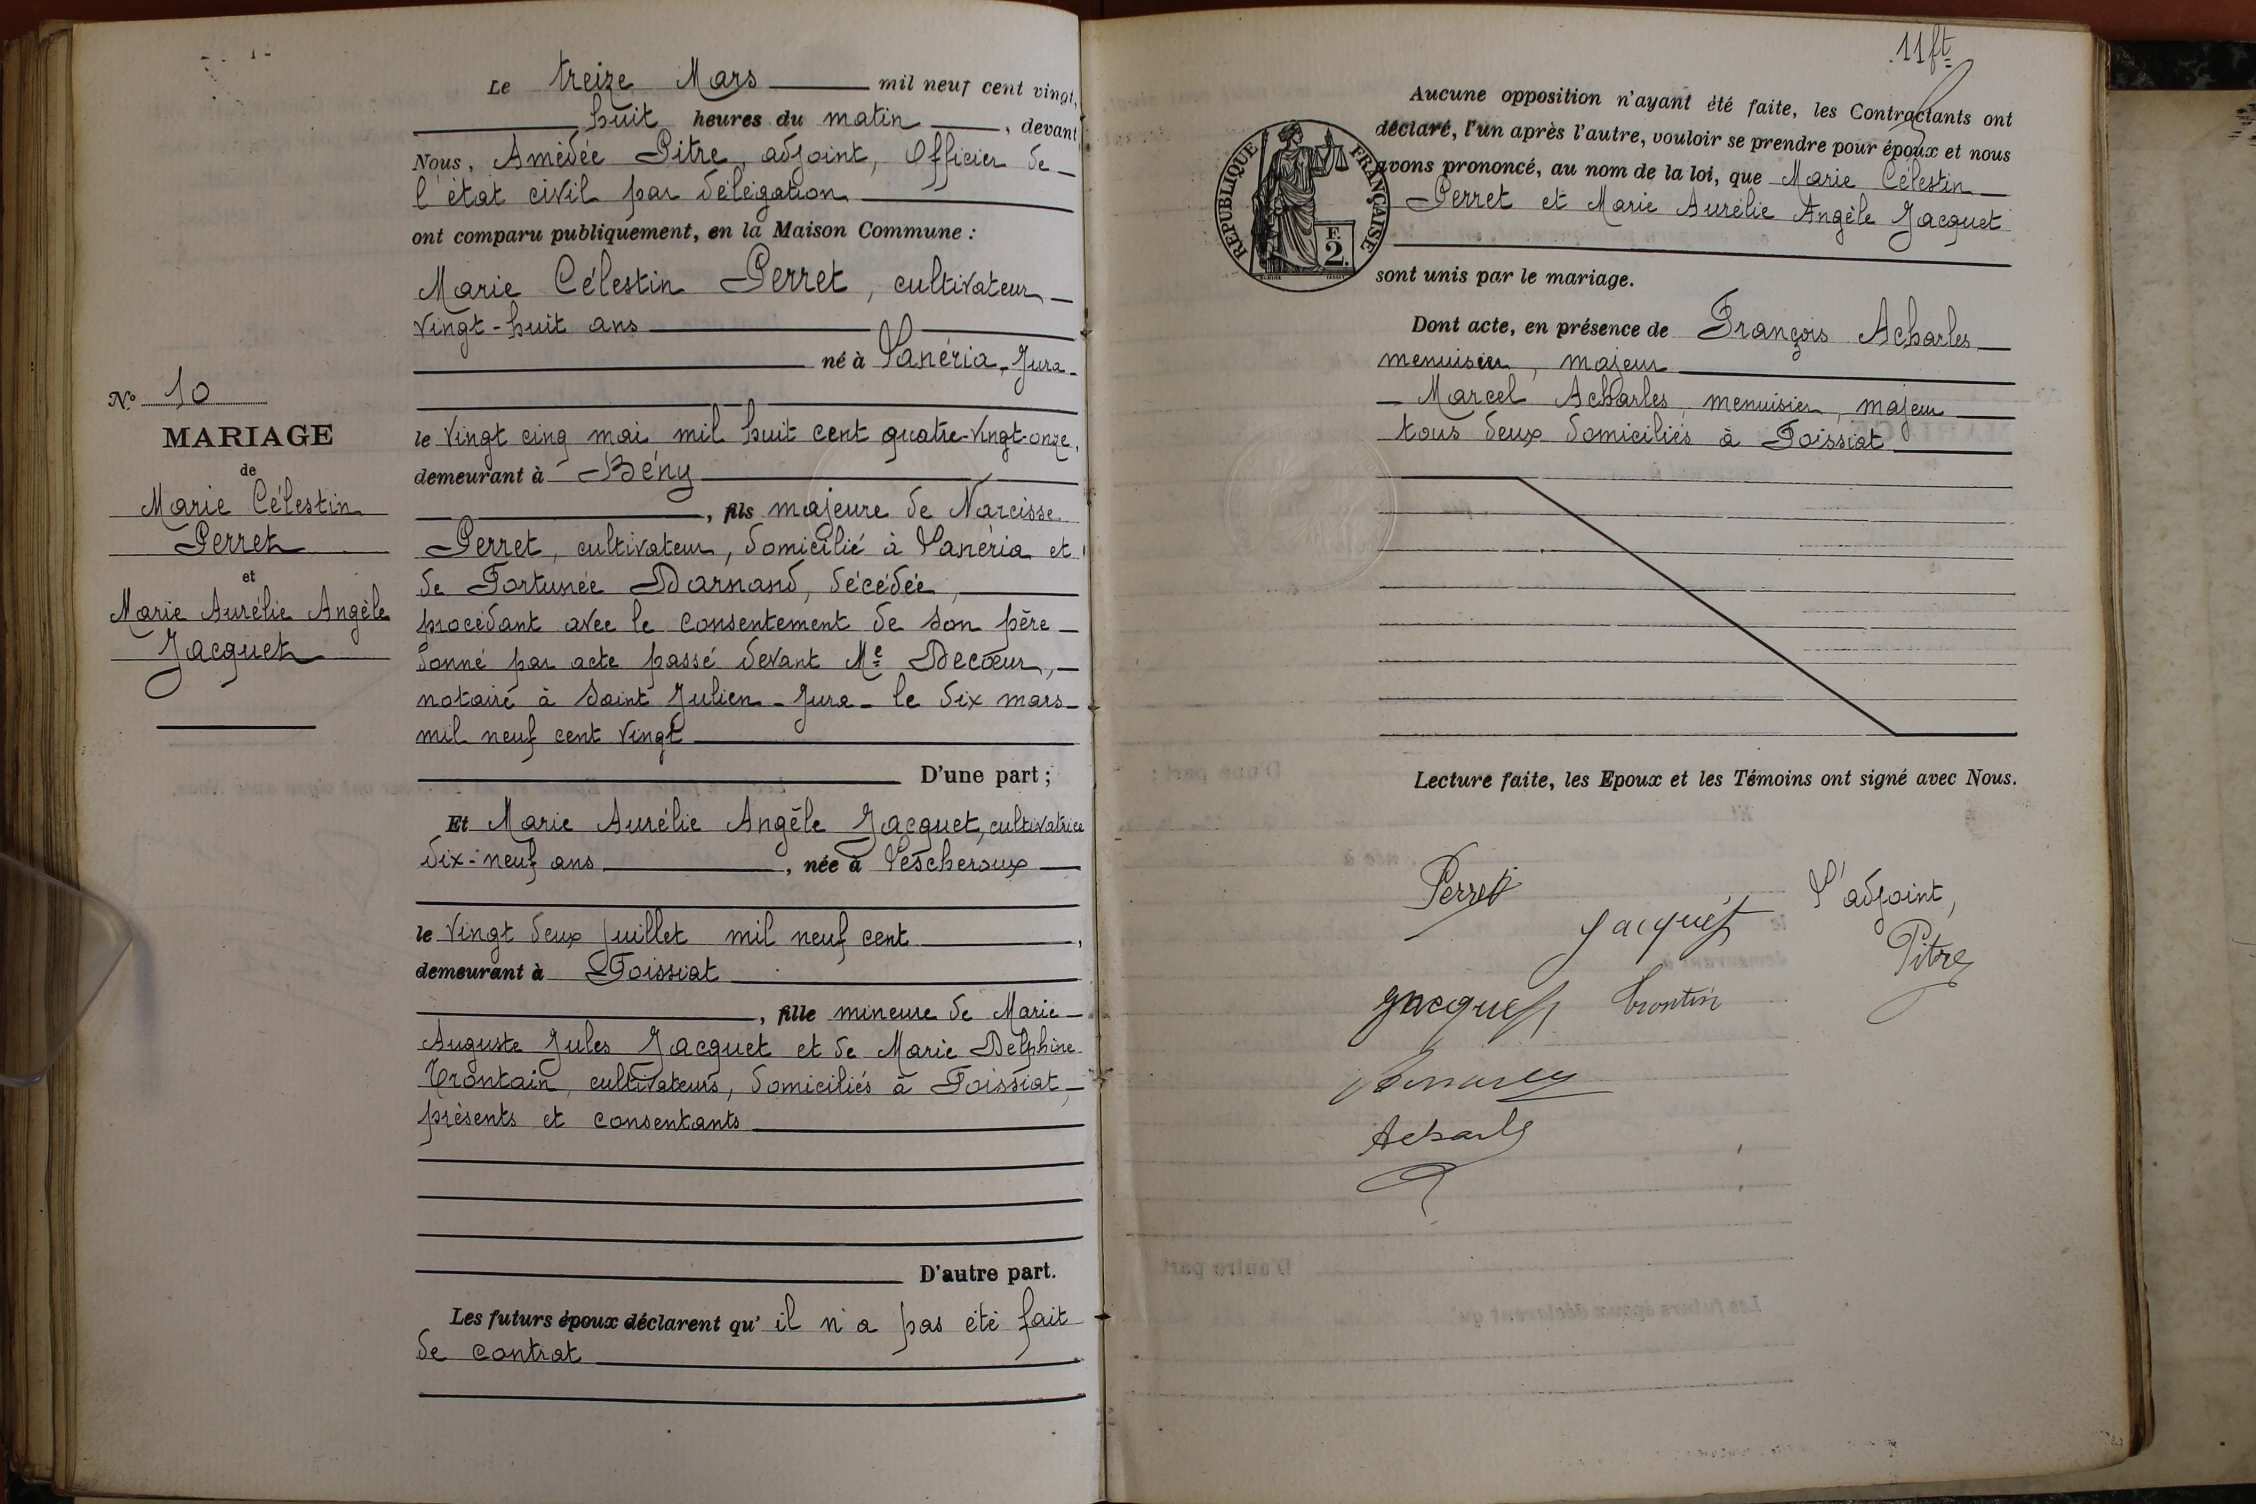 Le treize Mars mil neuf cent vingt,
huit heures du matin, devant
Nous, Amédée Pitre, adjoint, Officier de
l'état civil par délégation
ont comparu publiquement, en la Maison Commune :
Marie Célestin Perret, cultivateur
vingt-huit ans
né à Lanéria - Jura -
le vingt cinq mai mil huit cent quatre-vingt-onze,
demeurant à Bény
, fils majeure de Narcisse
Perret, cultivateur, domicilié à Lanéria et
de Fortunée Darnand, décédée,
procédant avec le consentement de son père
donné par acte passé devant Me Decœur,
notaire à Saint Julien - Jura - le dix mars
mil neuf cent vingt
D'une part ;
Et Marie Aurélie Angèle Jacquet, cultivatrice
dix-neuf ans, née à Lescheroux
le vingt deux juillet mil neuf cent,
demeurant à Foissiat
, fille mineure de Marie
Auguste Jules Jacquet et de Marie Delphine
Trontain, cultivateurs, domiciliés à Foissiat,
présents et consentants
D'autre part.
Les futurs époux déclarent qu'il n'a pas été fait
de contrat
No 10
MARIAGE
de
Marie Célestin
Perret
et
Marie Aurélie Angèle
Jacquet
11 ft
Aucune opposition n'ayant été faite, les Contractants ont
déclaré, l'un après l'autre, vouloir se prendre pour époux et nous
avons prononcé, au nom de la loi, que Marie Célestin
Perret et Marie Aurélie Angèle Jacquet
sont unis par le mariage.
RÉPUBLIQUE FRANÇAISE
F.
2.
Dont acte, en présence de François Acharles
menuisier, majeur
Marcel Acharles, menuisier, majeur
tous deux domiciliés à Foissiat
Lecture faite, les Epoux et les Témoins ont signé avec Nous.
Perret
Jacquet
L'adjoint,
Pitre
Jacquet
Trontin
Acharles